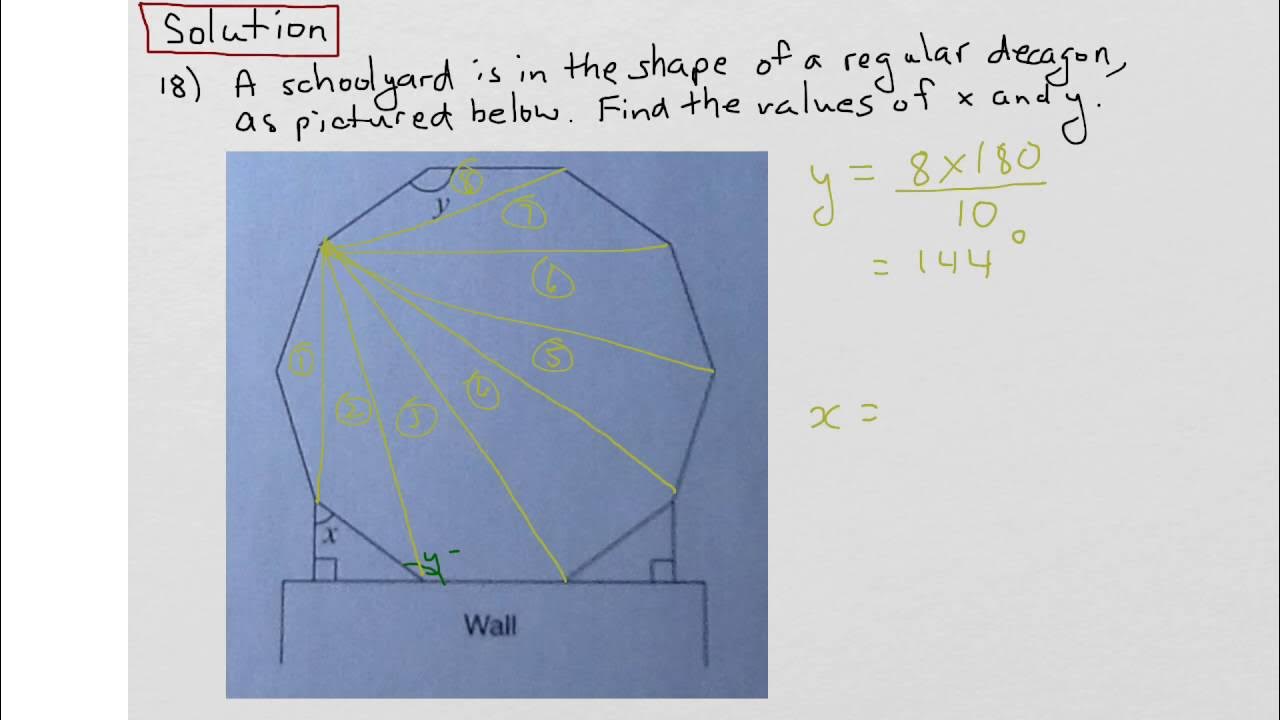 Solution
18) A schoolyard is in the shape of a regular decagon,
as pictured below. Find the values of x and y.
y = 8×180
10
= 144°
x =
8
y
7
6
5
1
4
2
3
x
y
Wall